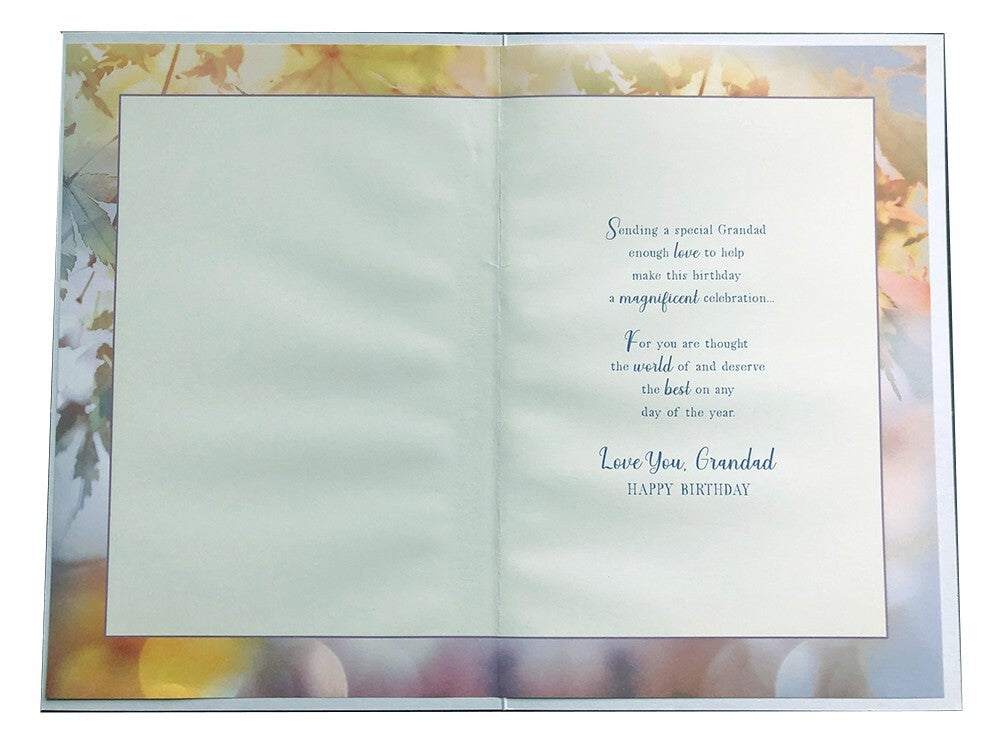 Sending a special Grandad
enough love to help
make this birthday
a magnificent celebration...
For you are thought
the world of and deserve
the best on any
day of the year.
Love You, Grandad
HAPPY BIRTHDAY